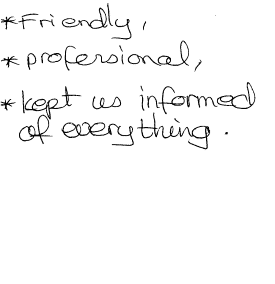 *Friendly,
*professional,
*kept us informed
of everything.